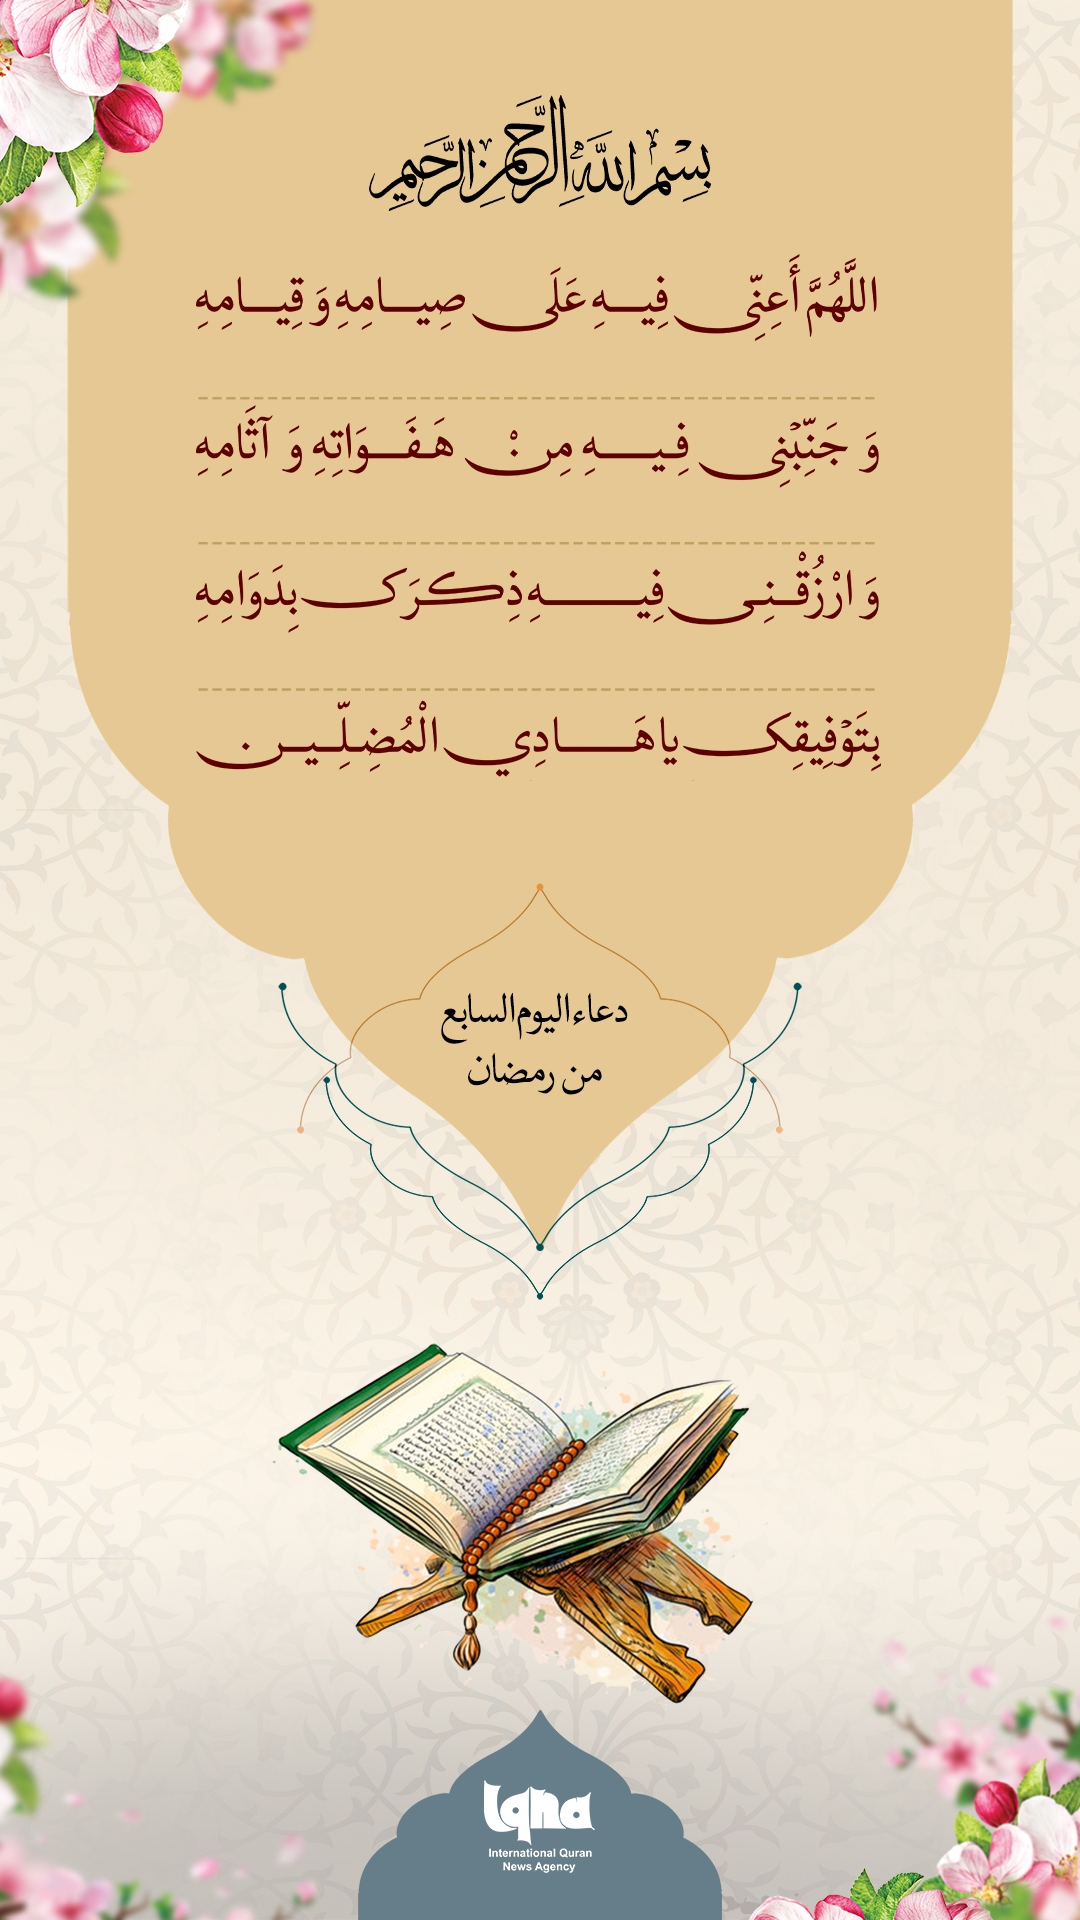 بِسْمِ اللَّهِ الرَّحْمنِ الرَّحيمِ
اللَّهُمَّ أَعِنِّی فِیهِ عَلَی صِیامِهِ وَ قِیامِهِ
وَ جَنِّبْنِی فِیهِ مِنْ هَفَوَاتِهِ وَ آثَامِهِ
وَ ارْزُقْنِی فِیهِ ذِکرَک بِدَوَامِهِ
بِتَوْفِیقِک یا هَادِي الْمُضِلِّین
دعاء اليوم السابع
من رمضان
Iqna
International Quran
News Agency